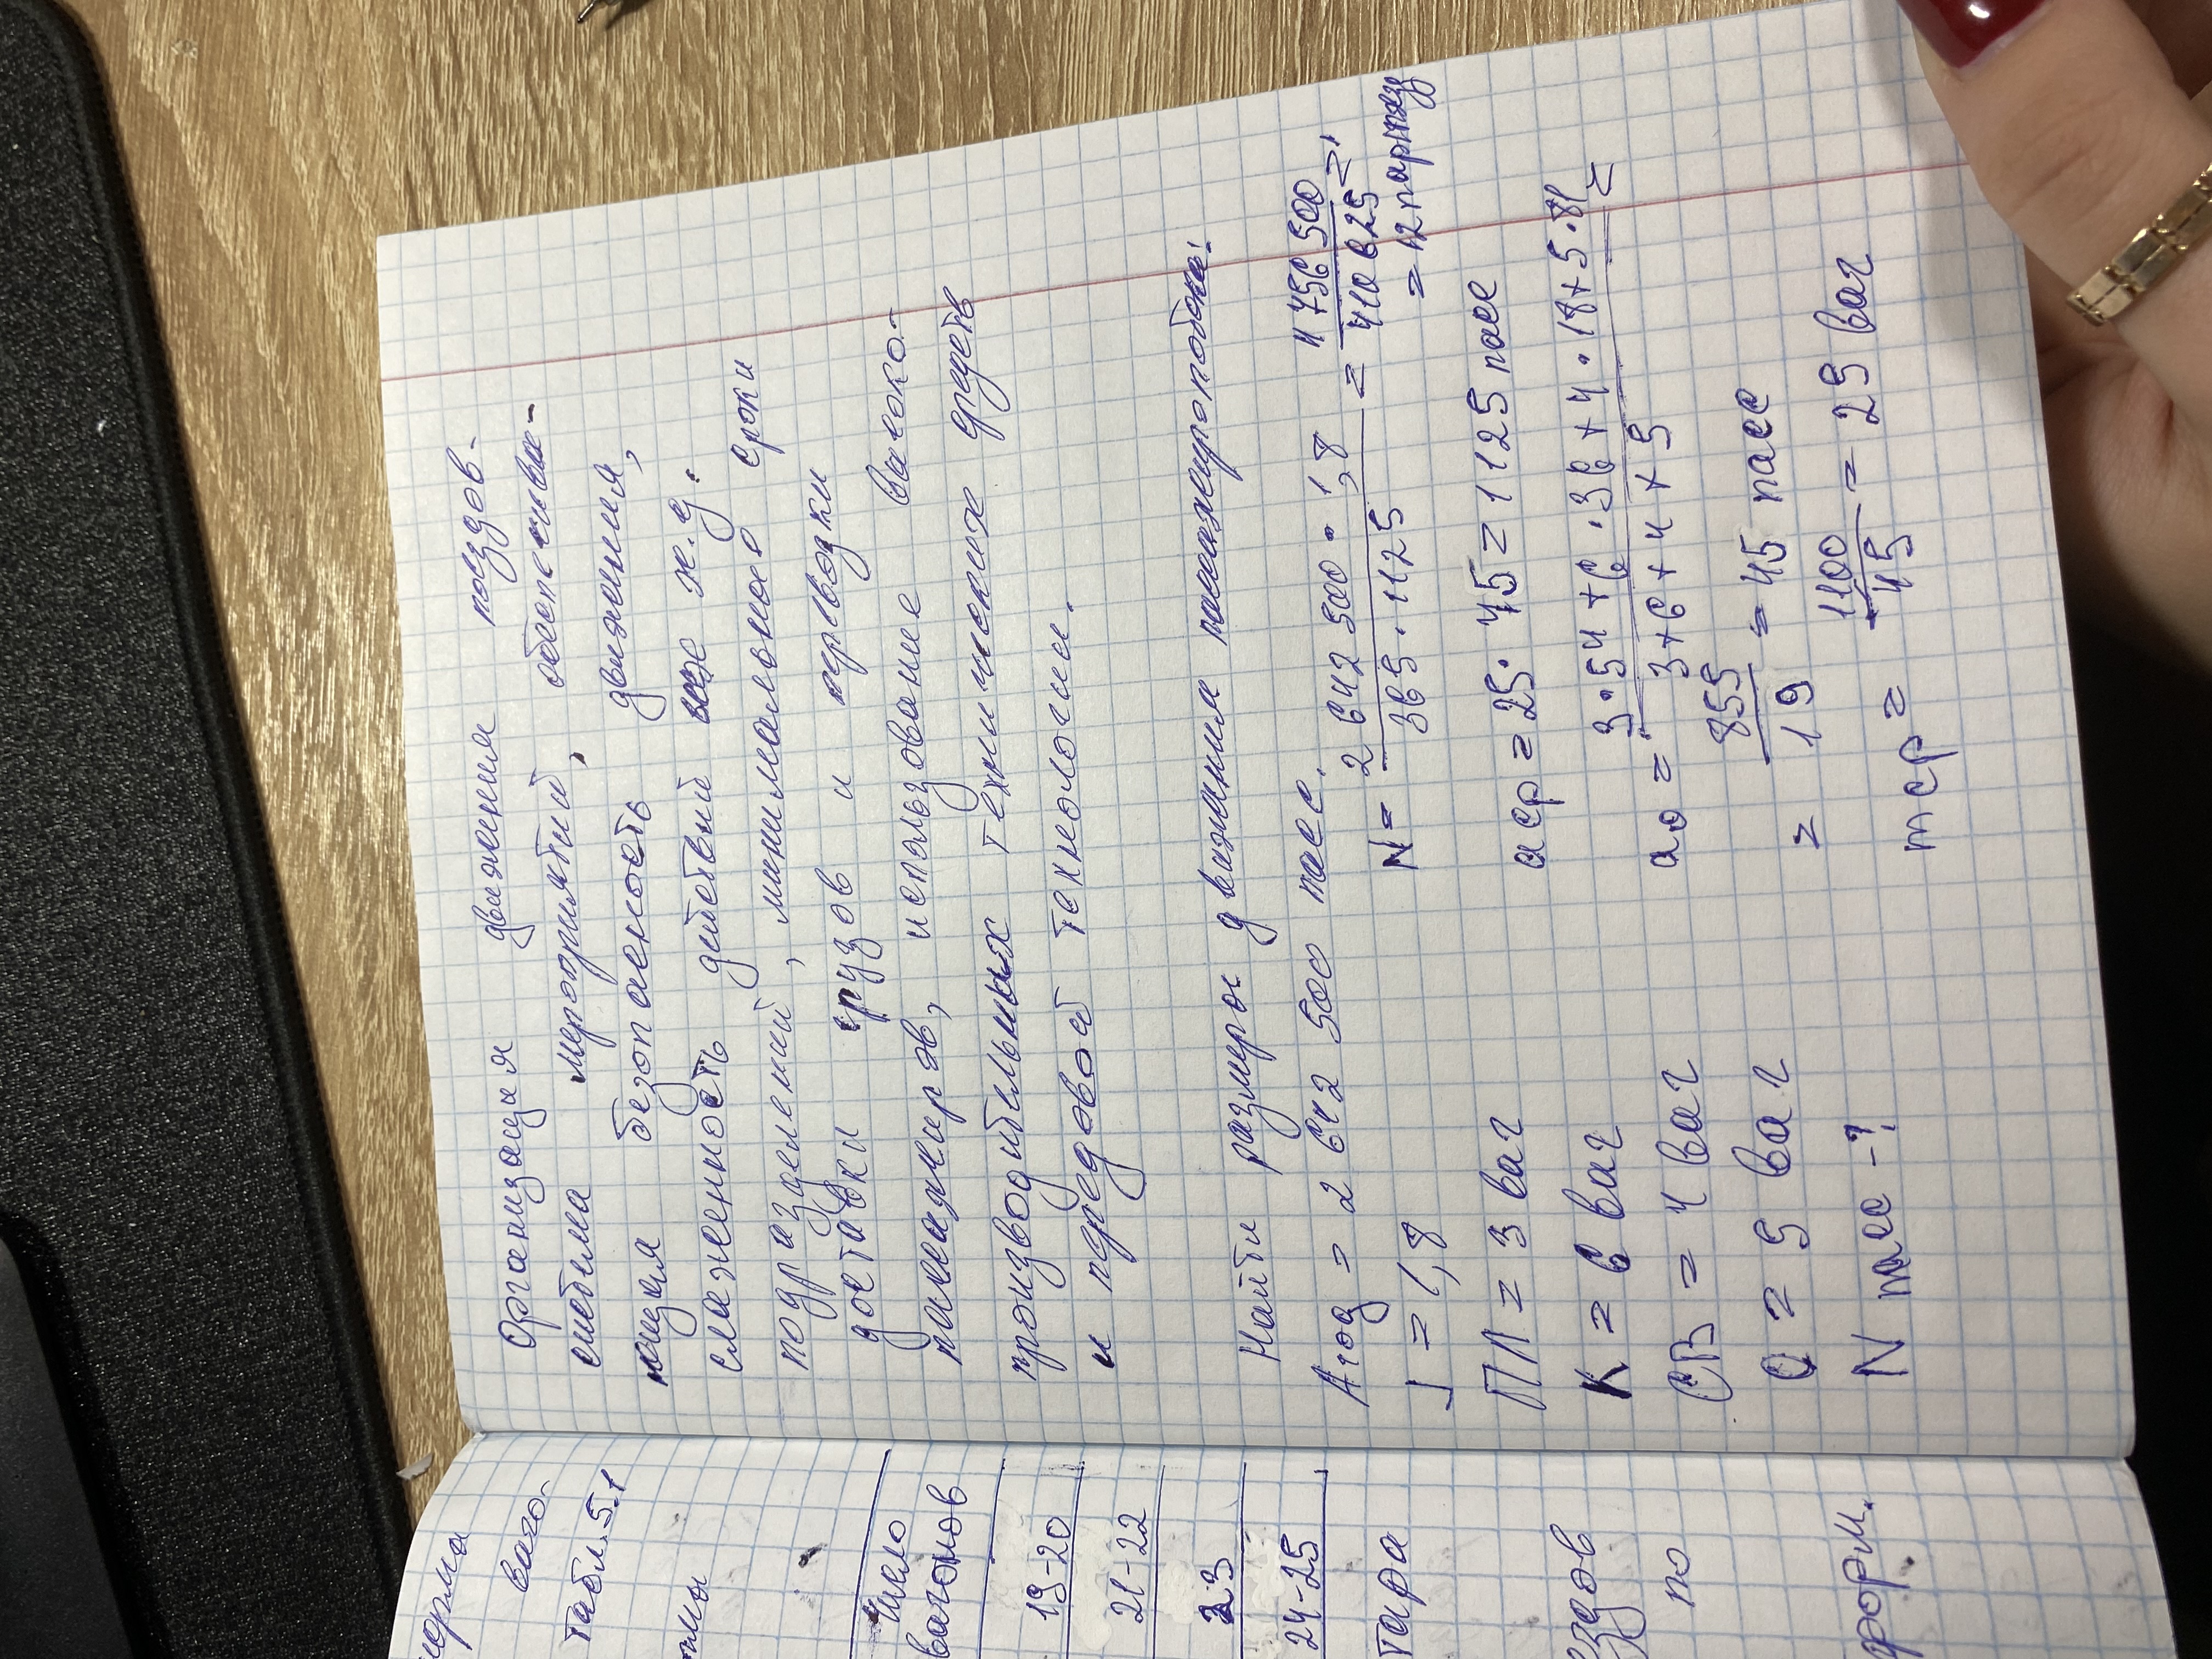 Организация движения поездов-
система мероприятий, обеспечива-
ющая безопасность движения,
слаженность действий всех ж.д.
подразделений, минимальное сроки
доставки грузов и перевозки
пассажиров, использование высоко-
производительных технических средств
и передовой технологии.
Найти размеры движения пассажиропотока:
Aгод = 2 642 500 пасс.
J = 1,8
ПЛ = 3 ваг
К = 6 ваг
СВ = 4 ваг
О = 5 ваг
N пасс -?
N = 2 642 500 · 1,8 / 365 · 1125 = 4 756 500 / 410 625 =
= 12 пар
aср = 25 · 45 = 1125 пасс
ao = 3·54 + 6·36 + 4·18 + 5·81 / 3+6+4+5 =
= 855 / 19 = 45 пасс
mср = 1100 / 45 = 25 ваг
норма
ваго-
табл.5.1
число
вагонов
19-20
21-22
23
24-25
тара
по
форм.